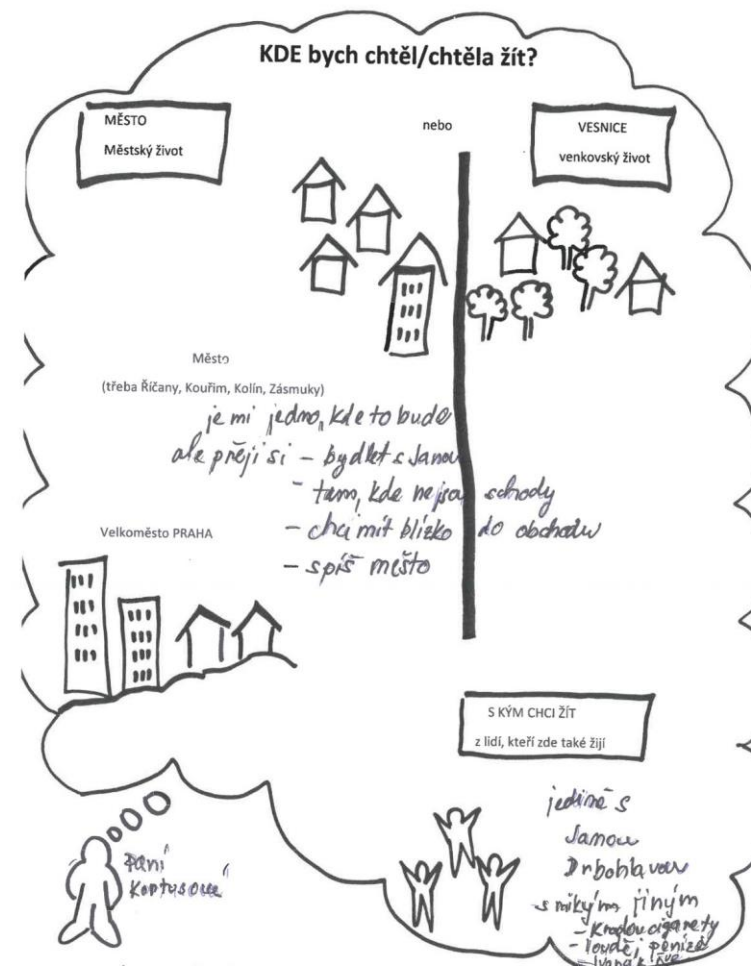 KDE bych chtěl/chtěla žít?
MĚSTO
Městský život
nebo
VESNICE
venkovský život
Město
(třeba Říčany, Kouřim, Kolín, Zásmuky)
je mi jedno, kde to bude
ale přeji si – bydlet s Janou
- tam, kde nejsou schody
- chci mít blízko do obchodu
- spíš město
Velkoměsto PRAHA
S KÝM CHCI ŽÍT
z lidí, kteří zde také žijí
paní
jedině s
Janou
s nikým jiným
- kradou cigarety
- loudí peníze